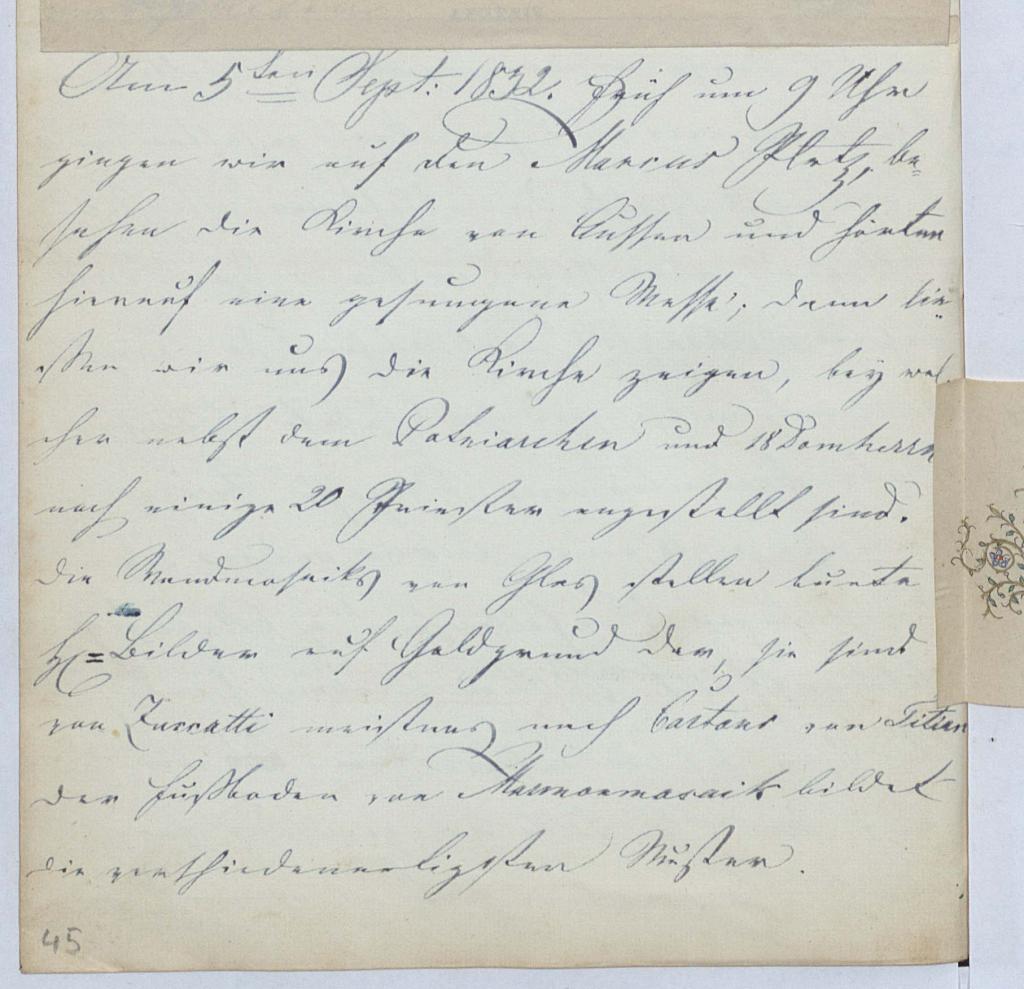 Am 5ten Sept: 1832. Früh um 9 Uhr
gingen wir auf den Marcus Platz, be-
sahen die Kirche von Aussen und hörten
hierauf eine gesungene Messe; dann lie-
ßen wir uns die Kirche zeigen, bey wel-
cher nebst dem Patriarchen und 18 Domherrn
noch einige 20 Priester angestellt sind.
Die Wandmosaiks von Glas stellen bunte
H=Bilder auf Goldgrund dar, sie sind
von Zuccatti meistens nach Cartons von Titian
der Fußboden von Marmormosaik bildet
die verschiedenartigsten Muster.
45